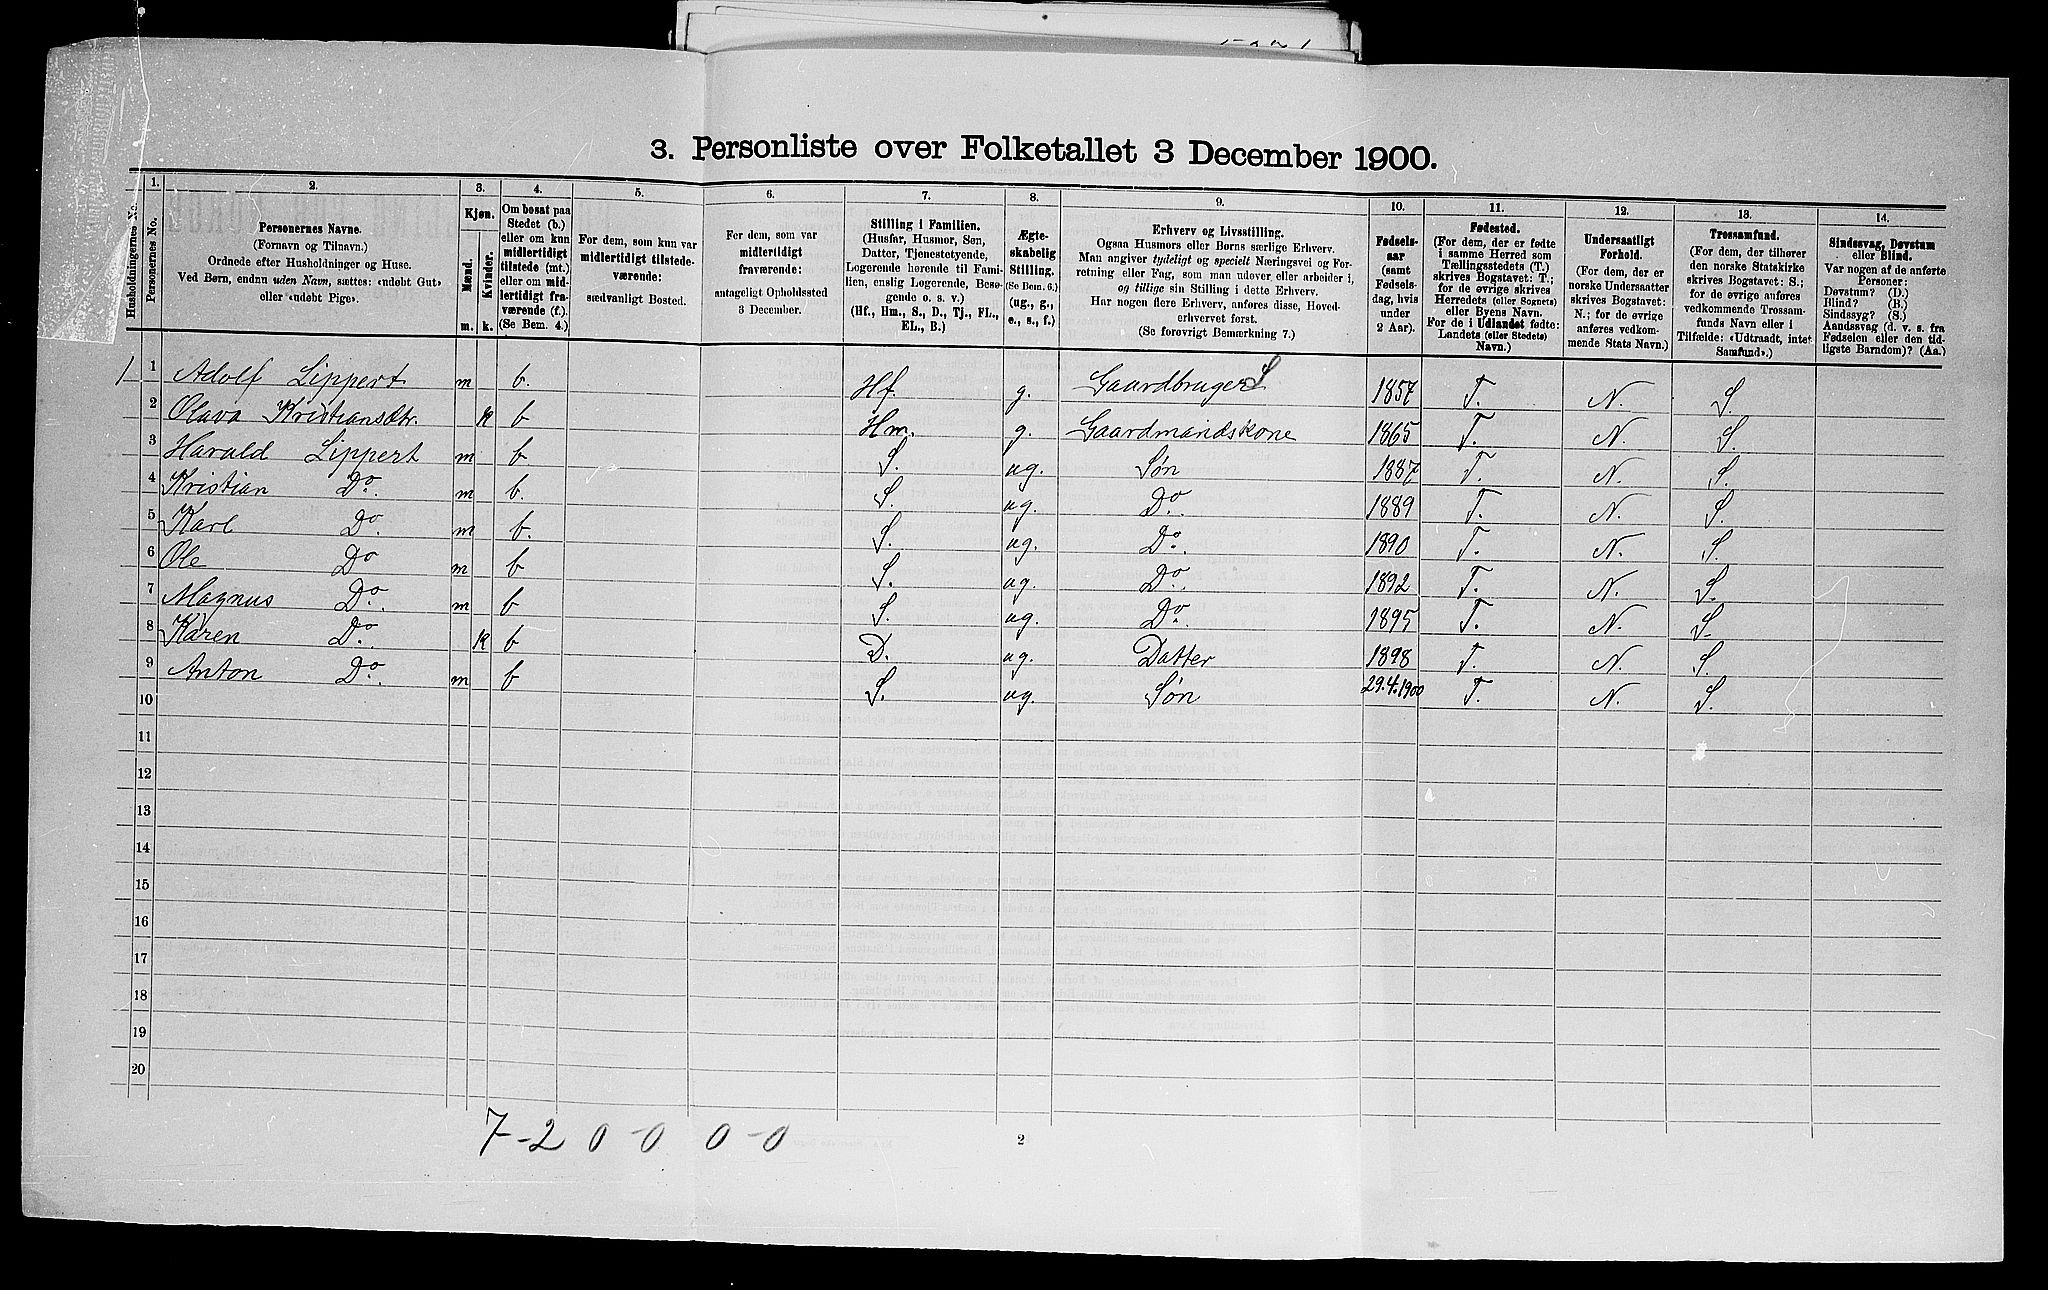 3. Personliste over Folketallet 3 December 1900.
Husholdningernes No.
1.
Personernes No.
2.
Personernes Navne.
(Fornavn og Tilnavn.)
Ordnede efter Husholdninger og Huse.
Ved Børn, endnu uden Navn, sættes: «udøbt Gut» eller «udøbt Pige».
3.
Kjøn.
Mænd.
Kvinder.
m.
k.
4.
Om bosat paa
Stedet (b.)
eller om kun
midlertidigt
tilstede (mt.)
eller om mid-
lertidigt fra-
værende (f.).
(Se Bem. 4.)
5.
For dem, som kun var
midlertidigt tilstede-
værende:
sædvanligt Bosted.
6.
For dem, som var
midlertidigt
fraværende:
antageligt Opholdssted
3 December.
7.
Stilling i Familien.
(Husfar, Husmor, Søn,
Datter, Tjenestetyende,
Logerende hørende til Fami-
lien, enslig Logerende, Besø-
gende o. s. v.)
(Hf., Hm., S., D., Tj., FL.,
EL., B.)
8.
Ægte-
skabelig
Stilling.
(Se Bem. 6.)
(ug., g.,
e., s., f.)
9.
Erhverv og Livsstilling.
Ogsaa Husmors eller Børns særlige Erhverv.
Man angiver tydeligt og specielt Næringsvei og For-
retning eller Fag, som man udøver eller arbeider i,
og tillige sin Stilling i dette Erhverv.
Har nogen flere Erhverv, anføres disse, Hoved-
erhvervet først.
(Se forøvrigt Bemærkning 7.)
10.
Fødsels-
aar
(samt
Fødsels-
dag, hvis
under
2 Aar).
11.
Fødested.
(For dem, der er fødte
i samme Herred som
Tællingsstedets (T.)
skrives Bogstavet: T.;
for de øvrige skrives
Herredets (eller Sognets)
eller Byens Navn.
For de i Udlandet fødte:
Landets (eller Stedets)
Navn.)
12.
Undersaatligt
Forhold.
(For dem, der er
norske Undersaatter
skrives Bogstavet:
N.; for de øvrige
anføres vedkom-
mende Stats Navn.)
13.
Trossamfund.
(For dem, der tilhører
den norske Statskirke
skrives Bogstavet: S.;
for de øvrige anføres
vedkommende Trossam-
funds Navn eller i
Tilfælde: «Udtraadt, intet
Samfund».)
14.
Sindssvag, Døvstum
eller Blind.
Var nogen af de anførte
Personer:
Døvstum? (D.)
Blind? (B.)
Sindssyg? (S.)
Aandssvag (d. v. s. fra
Fødselen eller den tid-
ligste Barndom)? (Aa.)
1 1 Adolf Lippert m b. Hf. g. Gaardbruger S 1857 T. N. S.
2 Olava Kristiansdtr. k b Hm. g. Gaardmandskone 1865 T. N. S.
3 Harald Lippert m b. S. ug. Søn 1887 T. N. S.
4 Kristian Do. m b. S. ug. Do. 1889 T. N. S.
5 Karl Do m b. S. ug. Do. 1890 T. N. S.
6 Ole Do m b S. ug. Do. 1892 T. N. S.
7 Magnus Do. m b S. ug. Do. 1895 T. N. S.
8 Karen Do. k b D. ug. Datter 1898 T. N. S.
9 Anton Do. m b S. ug. Søn 29.4.1900 T. N. S.
10
11
12
13
14
15
16
17
18
19
20
7-2 0-0 0-0
2